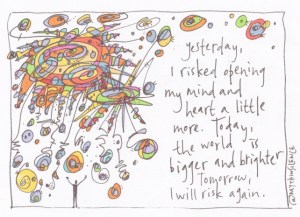 yesterday,
I risked opening
my mind and
heart a little
more. Today,
the world is
bigger and brighter
Tomorrow,
I will risk again.